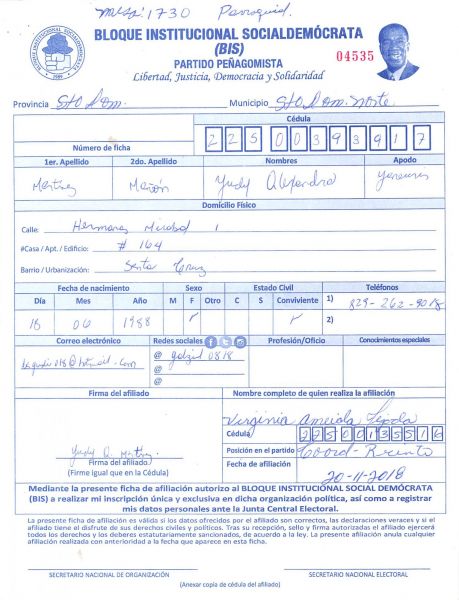 Mesa: 1730
BLOQUE INSTITUCIONAL SOCIALDEMÓCRATA
(BIS)
PARTIDO PEÑAGOMISTA
Libertad, Justicia, Democracia y Solidaridad
04535
BLOQUE INSTITUCIONAL SOCIALDEMOCRATA
Provincia Sto Dom. Municipio Sto Dom. Norte
Cédula
Número de ficha 2 2 5 0 0 3 9 3 9 1 7
1er. Apellido 2do. Apellido Nombres Apodo
Yudy Alejandra
Domicilio Físico
Calle: Hermanas Mirabal
#Casa / Apt. / Edificio: # 164
Barrio / Urbanización: Santa Cruz
Fecha de nacimiento Sexo Estado Civil Teléfonos
Día Mes Año M F Otro C S Conviviente 1) 829-262-9018
06 1988 2)
Correo electrónico Redes sociales Profesión/Oficio Conocimientos especiales
@
@
@
Firma del afiliado Nombre completo de quien realiza la afiliación
Virginia
Cédula 2 2 5 0 0 1 3 5 5 1 6
Firma del afiliado Posición en el partido Coord-
(Firme igual que en la Cédula) Fecha de afiliación 20-11-2018
Mediante la presente ficha de afiliación autorizo al BLOQUE INSTITUCIONAL SOCIAL DEMÓCRATA
(BIS) a realizar mi inscripción única y exclusiva en dicha organización política, así como a registrar
mis datos personales ante la Junta Central Electoral.
La presente ficha de afiliación es válida si los datos ofrecidos por el afiliado son correctos, las declaraciones veraces y si el
afiliado tiene el disfrute de sus derechos civiles y políticos. Tras su recepción, sello y firma autorizada el afiliado ejercerá
todos los derechos y los deberes estatutariamente sancionados, de acuerdo a la ley. La presente afiliación anula cualquier
afiliación realizada con anterioridad a la fecha que aparece en esta ficha.
SECRETARIO NACIONAL DE ORGANIZACIÓN SECRETARIO NACIONAL ELECTORAL
(Anexar copia de cédula del afiliado)